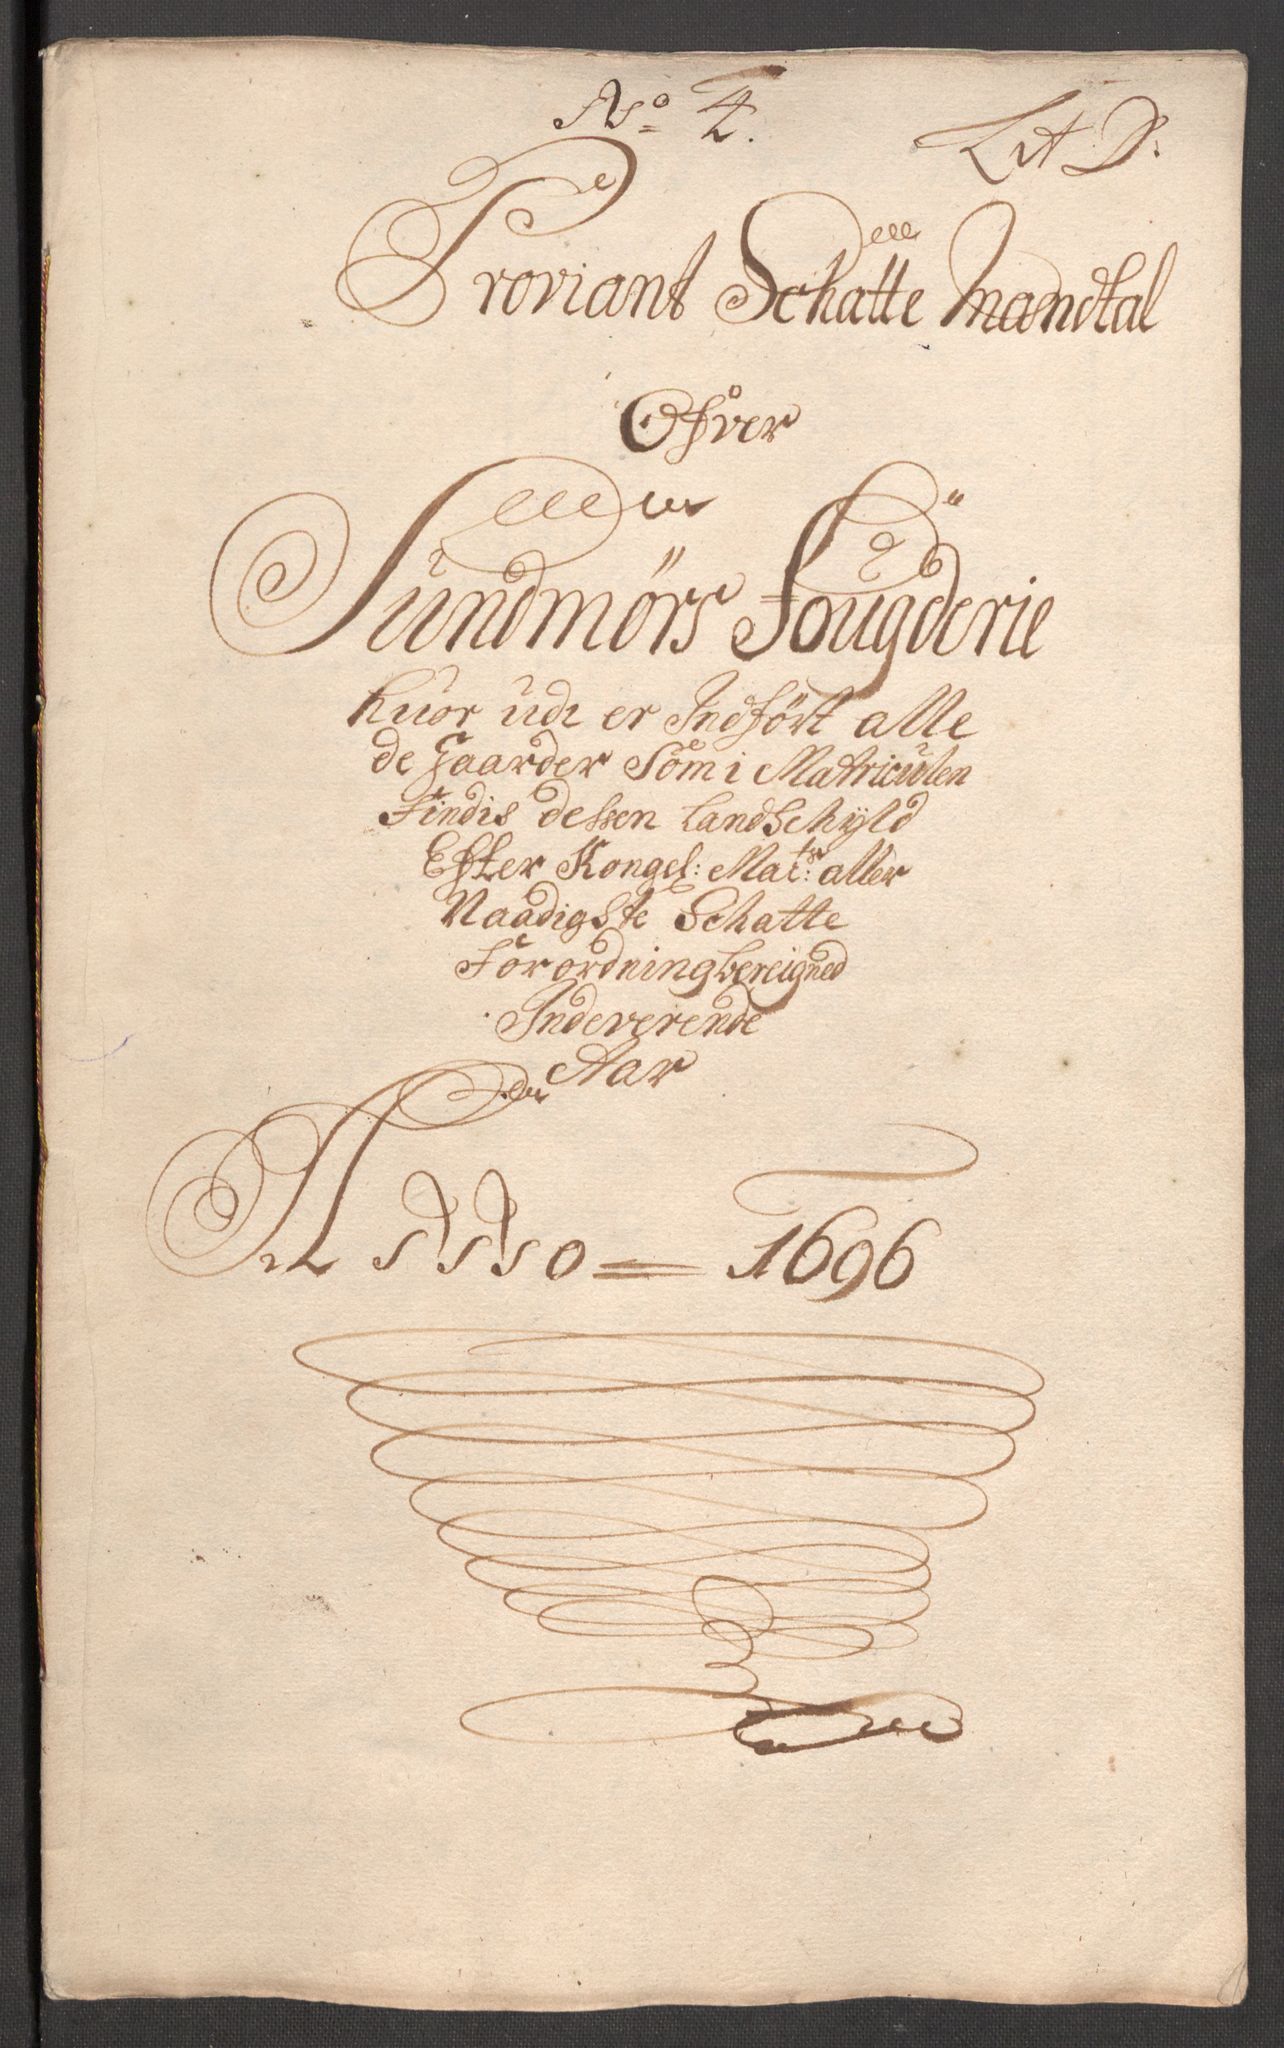 No 4. Lit D:
Proviant Schatte Mandtal
Ofver
Sundmörs Fougderie
huor udi er Indfört alle
de Gaarder Som i Matriculen
Findis dessen Landschÿld
Efter Kongel: Maits: aller
Naadigste Schatte
Forordning bereigned
Indeverende
Aar
Anno 1696